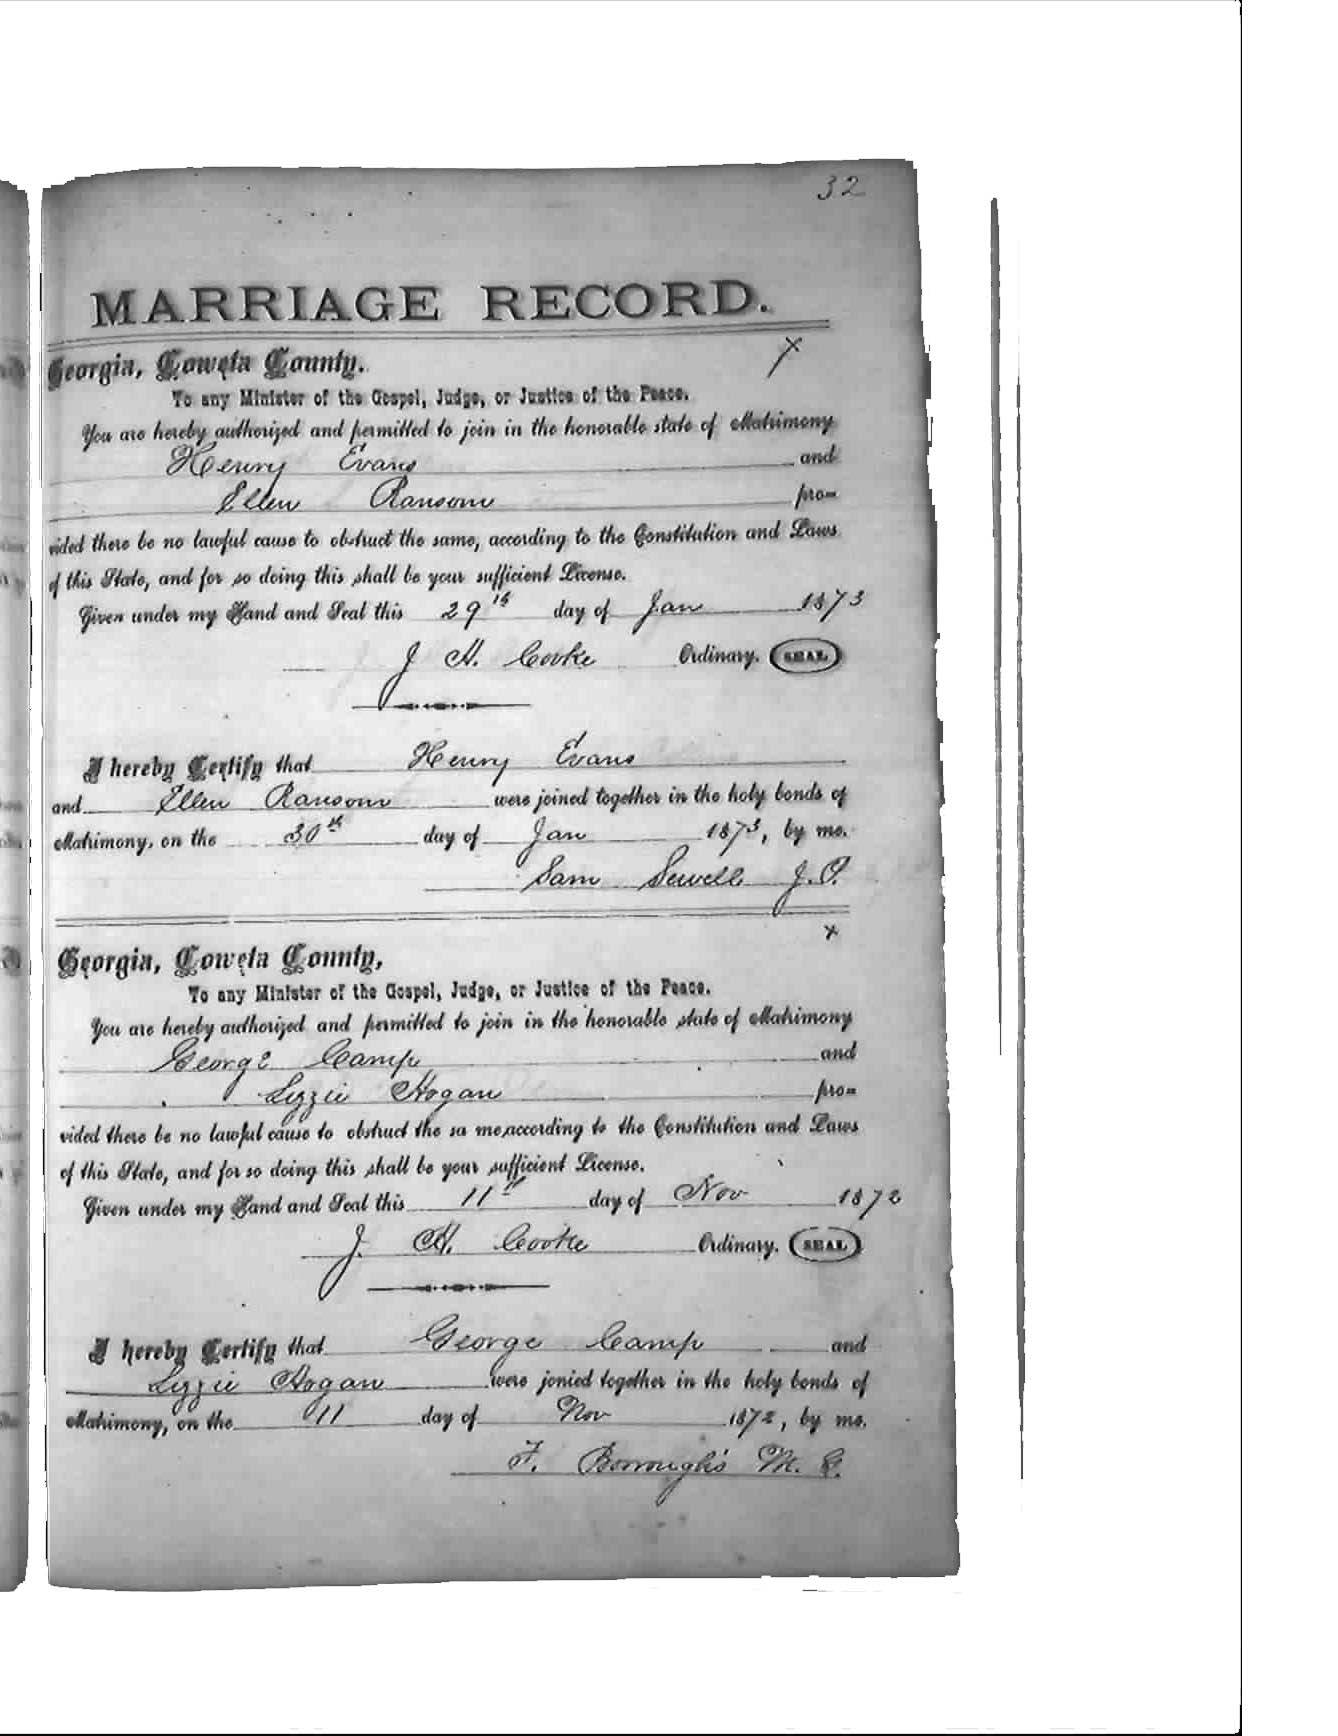 32
MARRIAGE RECORD.
Georgia, Coweta County.
x
To any Minister of the Gospel, Judge, or Justice of the Peace.
You are hereby authorized and permitted to join in the honorable state of Matrimony
Henry Evans and
Ellen Ransom pro-
vided there be no lawful cause to obstruct the same, according to the Constitution and Laws
of this State, and for so doing this shall be your sufficient License.
Given under my Hand and Seal this 29th day of Jan 1873
J H. Cooke Ordinary. SEAL
I hereby Certify that Henry Evans
and Ellen Ransom were joined together in the holy bonds of
Matrimony, on the 30th day of Jan 1873, by me.
Sam Sewell J. P.
x
Georgia, Coweta County,
To any Minister of the Gospel, Judge, or Justice of the Peace.
You are hereby authorized and permitted to join in the honorable state of Matrimony
George Camp and
Lizzie Hogan pro-
vided there be no lawful cause to obstruct the sa me, according to the Constitution and Laws
of this State, and for so doing this shall be your sufficient License.
Given under my Hand and Seal this 11th day of Nov 1872
J. H. Cooke Ordinary. SEAL
I hereby Certify that George Camp and
Lizzie Hogan were jonied together in the holy bonds of
Matrimony, on the 11 day of Nov 1872, by me.
F. Borrough's M. G.